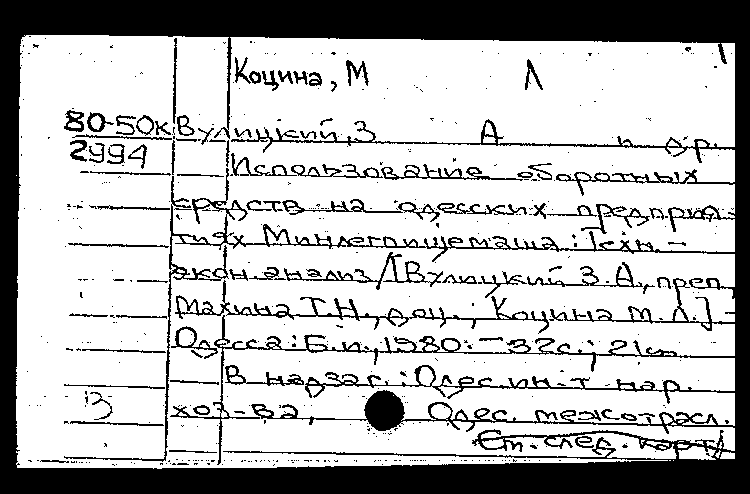 Коцина, М Л
80-50к Вулицкий, З А и др.
2994 Использование оборотных
средств на одесских предприя-
тиях Минлегпищемаша: Техн.-
экон. анализ/[Вулицкий З.А., преп,
Махина Т.Н., доц.; Коцина М.Л.] -
Одесса: Б.и., 1980. - 32с.; 21см
В надзаг.: Одес. ин-т нар.
В хоз-ва, Одес. межотрасл.
См. след. карт